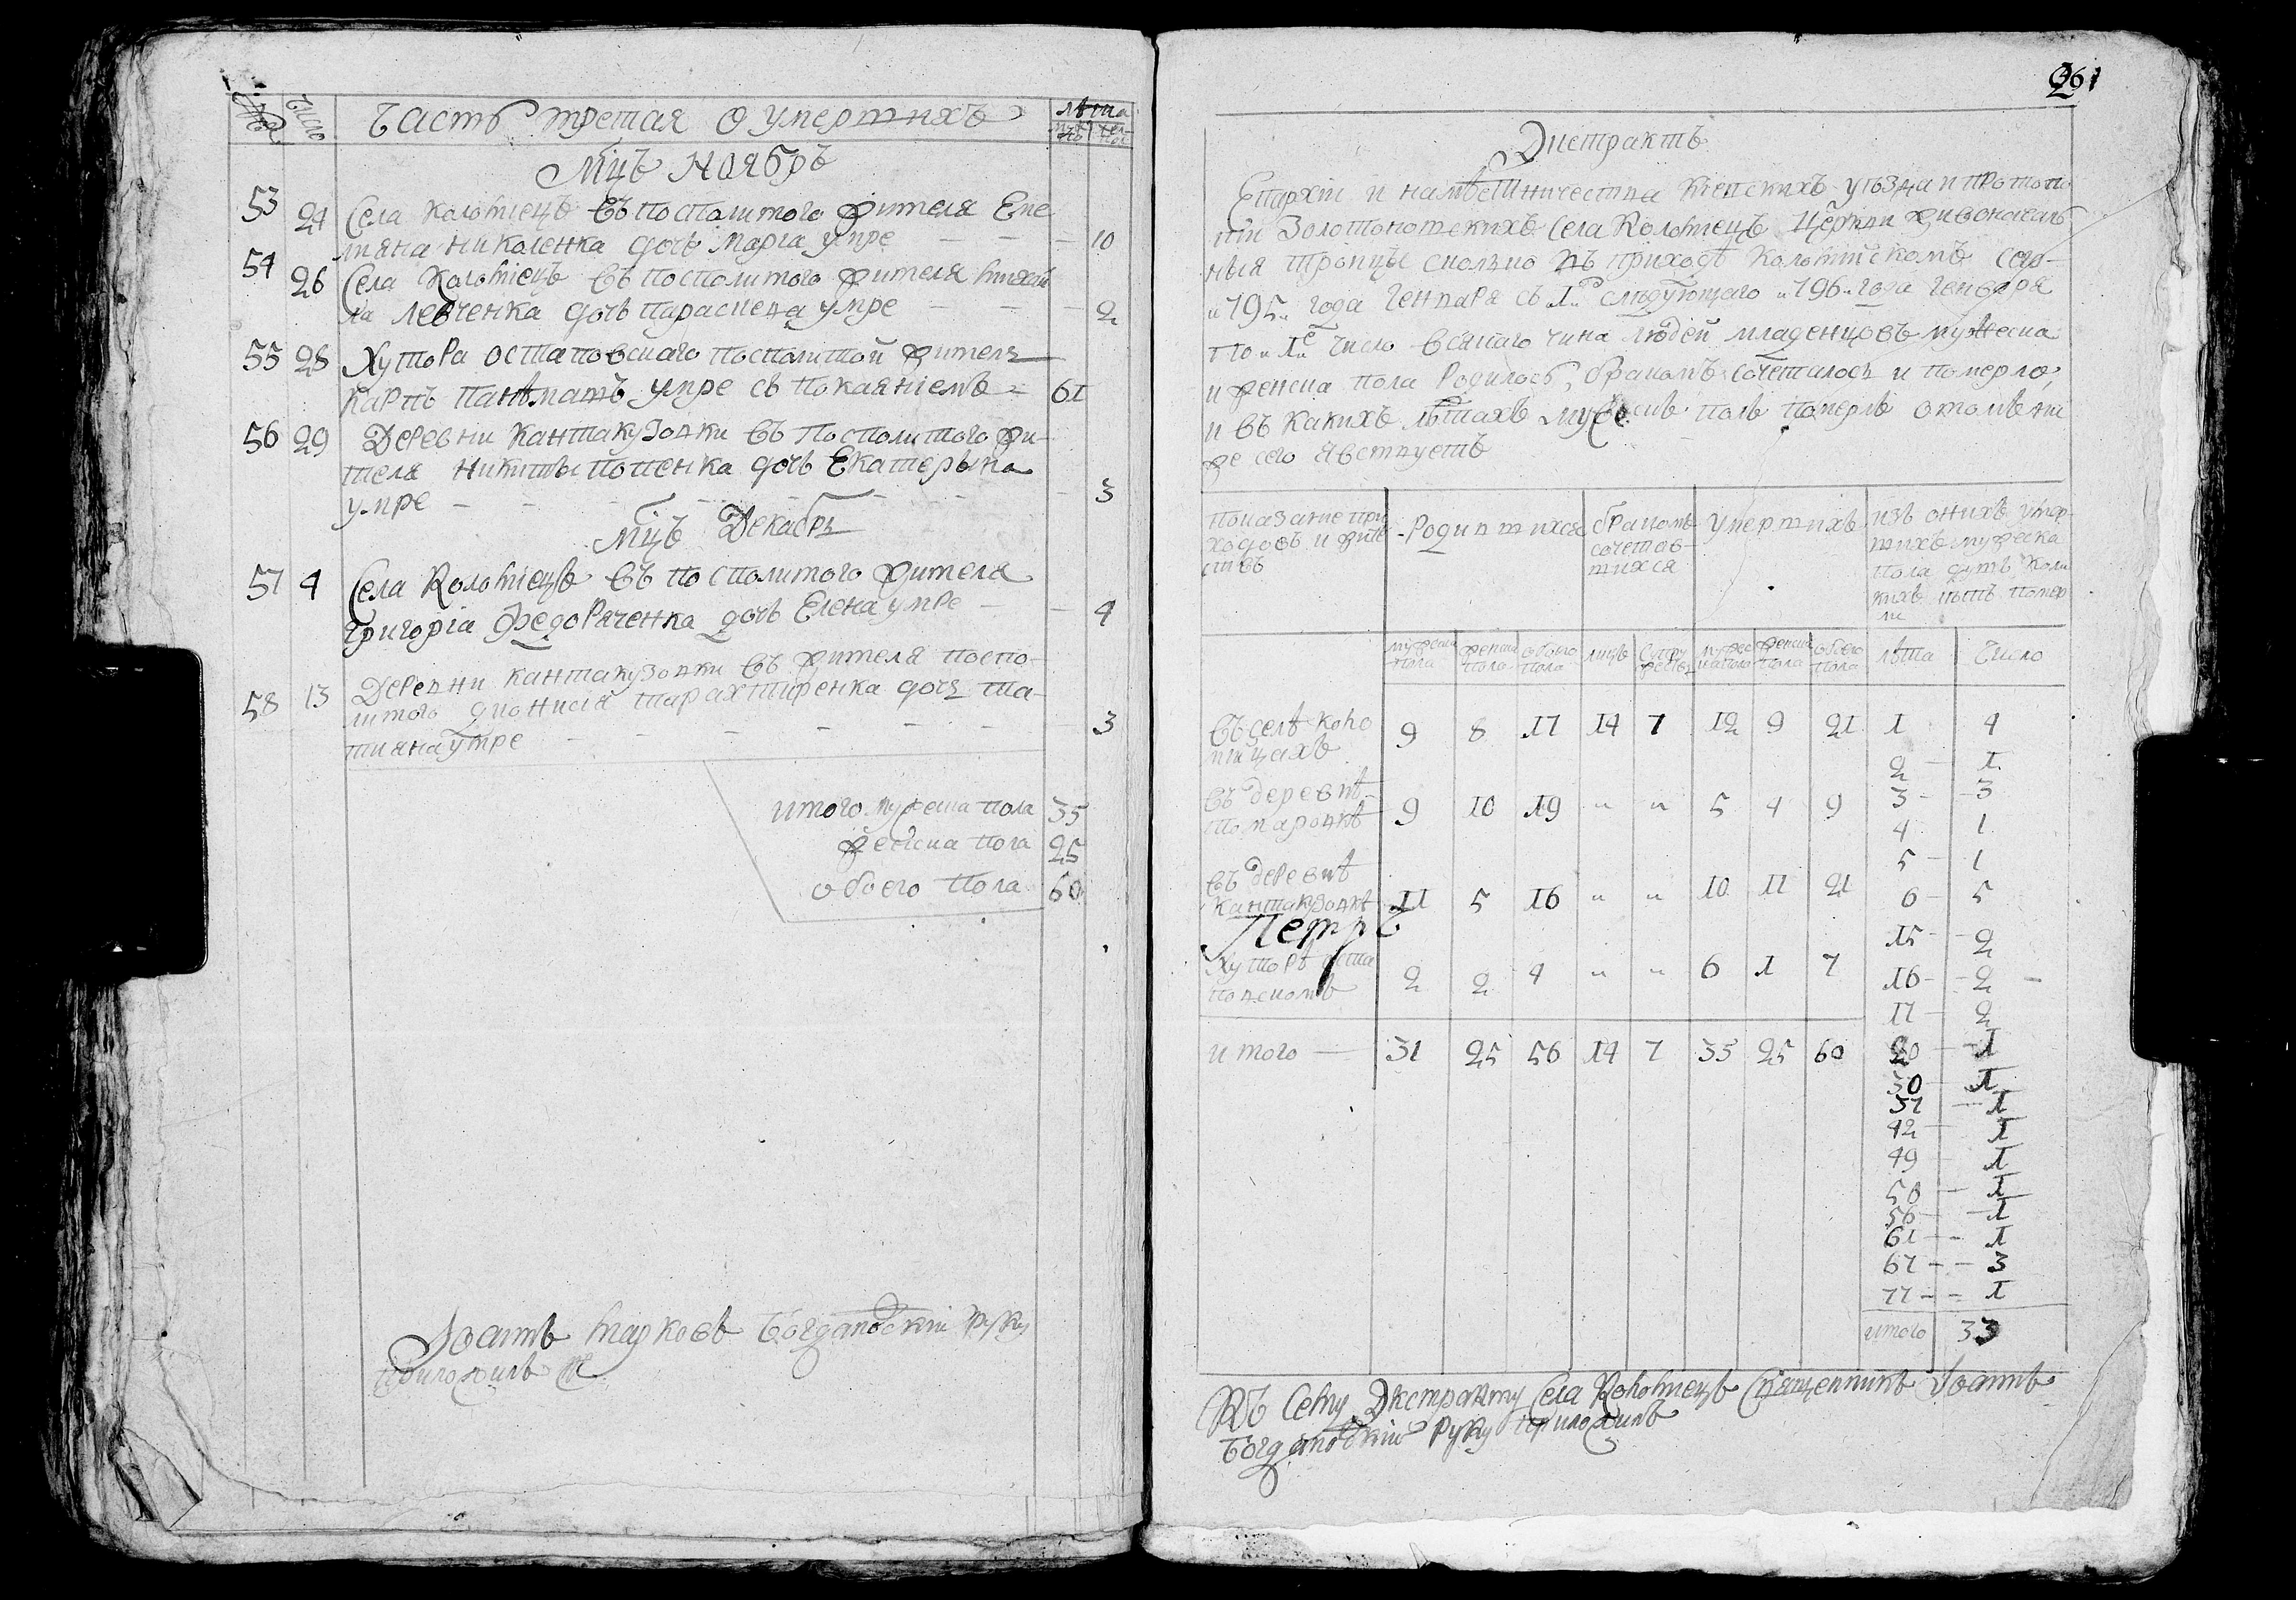 Число Часть третая о умершихъ лѣта
Мцъ Ноябръ
53 24 Села Колѣнецъ въ посполитого жителя Еме
ляна Николенка дочь Марѳа умре — — — 10
54 26 Села Колѣнецъ въ посполитого жителя Михай
ла Левченка дочь Параскева умре — — — 2
55 28 Хутора Остаповскаго посполитой житель
Карпъ умре съ покаяніемъ — 61
56 29 Деревни Кантакузовки въ посполитого жи-
теля Никиты Попенка дочь Екатерына
умре — — — 3
Мцъ Декабръ
57 4 Села Колѣнецъ въ посполитого жителя
Григорія Федоряченка дочь Елена умре — — 4
58 13 Деревни Кантакузовки въ жителя поспо-
литого Дионисія Тарахтыренка дочь Та-
тияна умре — — — — — — 3
итого мужеска пола 35
женска пола 25
обоего пола 60
Іоаннъ Марковъ Богдановскій руку
приложилъ
261
Экстрактъ
Епархіи и намѣстничества Кіевскихъ уѣзда и протопо
піи Золотоношскихъ села Колѣнецъ церкви Живоначаль
ныя Тройцы сколько въ приходѣ Колѣнскомъ сего-
„795„ года генваря съ „1„го слѣдующаго „796„ года генваря
по „1„е число всякаго чина людей младенцовъ мужеска
и женска пола родилось, бракомъ сочеталось и померло,
и въ какихъ лѣтахъ мужескъ полъ померлъ о томъ ни
же сего явствуетъ
Показание при
ходовъ и жите
лствъ
Родившихся
бракомъ
сочетав-
шихся
умершихъ
изъ онихъ умер-
шихъ мужеска
пола душъ коли
кихъ лѣтъ помер
ли
мужеска пола женска пола обоего пола лицъ супру жествъ мужес ка пола женска пола обоего пола лѣта Число
въ селѣ Колѣ
нцахъ 9 8 17 14 7 12 9 21 1 4
2 — 1
въ деревнѣ 3 — 3
9 10 19 „ „ 5 4 9
4 1
5 — 1
въ деревнѣ
Кантакузовкѣ 11 5 16 „ „ 10 11 21 6 — 5
Петръ
15 — 2
Хуторѣ Оста
повскомъ 2 2 4 „ „ 6 1 7 16 — 2
17 — 2
итого — 31 25 56 14 7 33 25 60 20 — 1
30 — 1
37 — 1
42 — 1
49 — 1
50 — 1
56 — 1
61 — 1
67 — 3
77 — 1
итого 33
Къ сему Экстракту села Колѣнецъ священникъ Іоаннъ
Богдановскій руку приложилъ